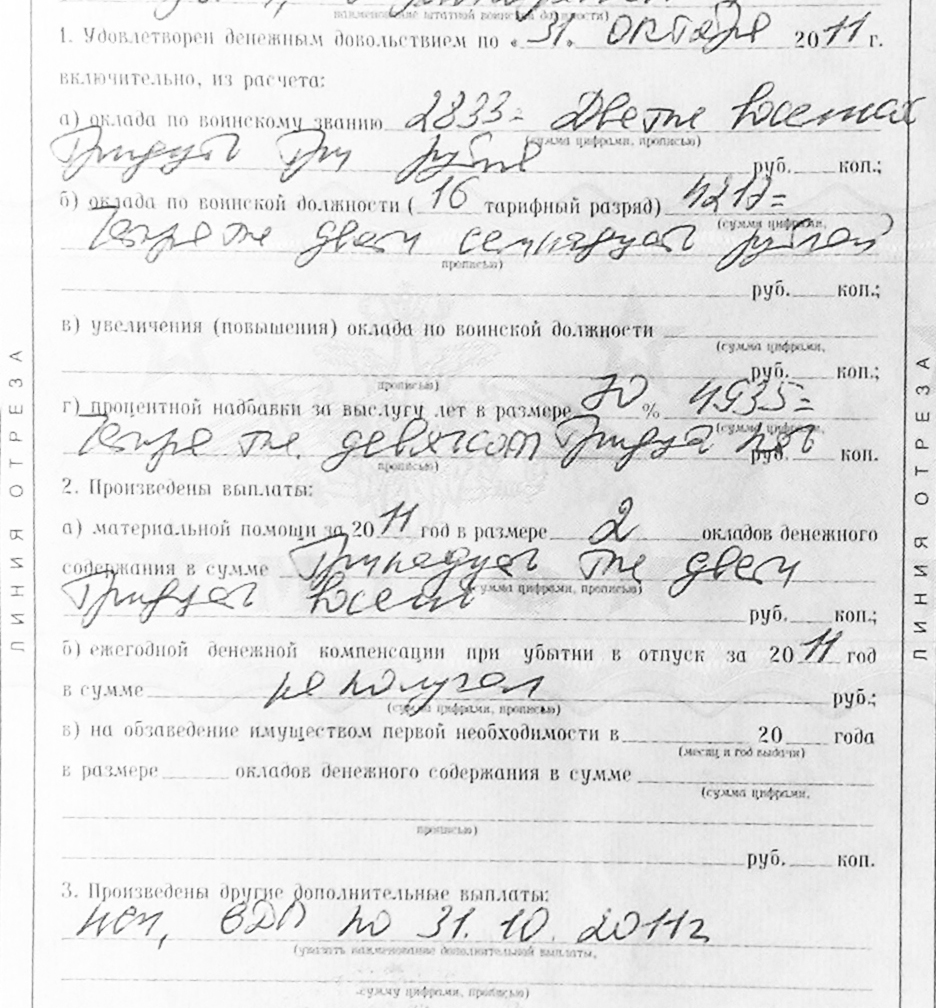 наименование штатной воинской должности)
1. Удовлетворен денежным довольствием по «31» октября 2011 г.
включительно, из расчета:
а) оклада по воинскому званию 2833= Две тыс восемьсот
(сумма цифрами, прописью)
Тридцать три рубля руб. коп.;
б) оклада по воинской должности ( 16 тарифный разряд) 4217=
(сумма цифрами,
Четыре тыс двести семнадцать рублей
прописью)
руб. коп.;
в) увеличения (повышения) оклада по воинской должности
(сумма цифрами,
руб. коп.;
прописью)
г) процентной надбавки за выслугу лет в размере 70 % 4935=
(сумма цифрами,
Четыре тыс. девятсот Тридцать пять руб. коп.
прописью)
2. Произведены выплаты:
а) материальной помощи за 2011 год в размере 2 окладов денежного
содержания в сумме Тринадцать тыс двести
(сумма цифрами, прописью)
Тридцать восемь руб. коп.;
б) ежегодной денежной компенсации при убытии в отпуск за 2011 год
в сумме не получал руб.;
(сумма цифрами, прописью)
в) на обзаведение имуществом первой необходимости в 20 года
(месяц и год выдачи)
в размере окладов денежного содержания в сумме
(сумма цифрами,
прописью)
руб. коп.
3. Произведены другие дополнительные выплаты:
ЕДП по 31.10.2011г
(указать наименование дополнительной выплаты,
сумму цифрами, прописью)
ЛИНИЯ ОТРЕЗА
ЛИНИЯ ОТРЕЗА